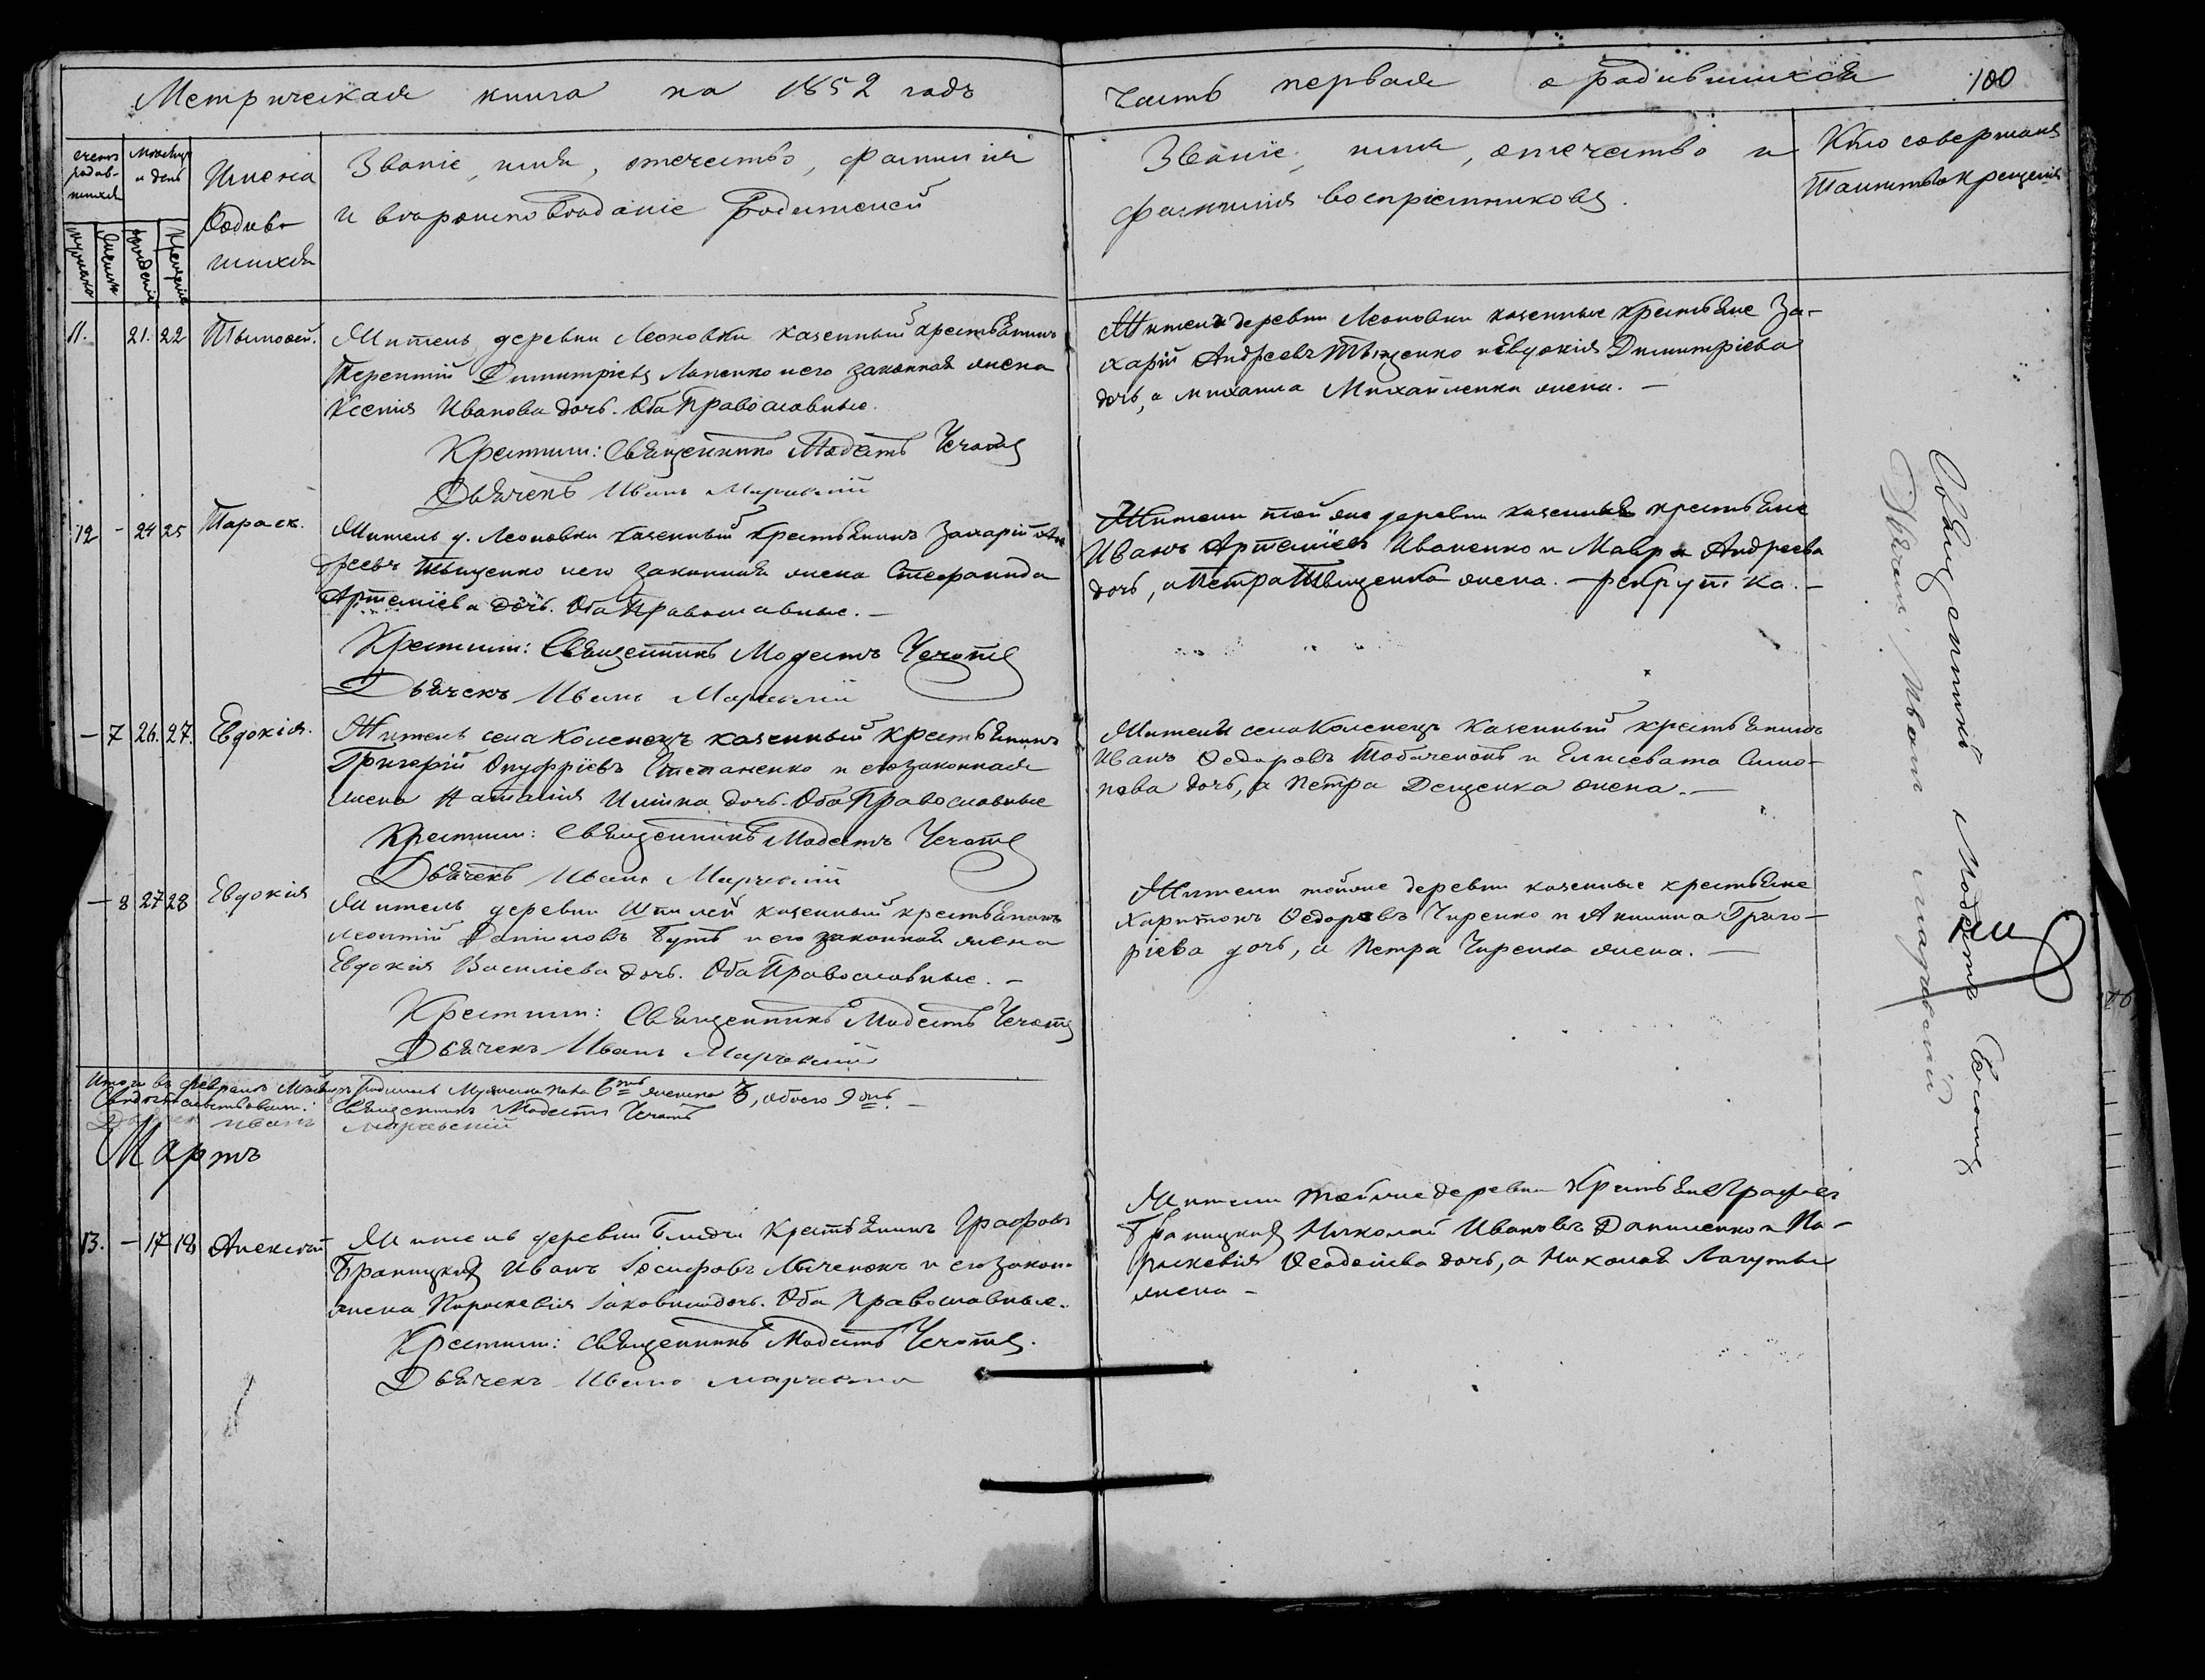 Метрическая книга на 1852 годъ
Часть первая о родившихся 100
счетъ родив-
шихся
Мѣсяцъ
и день
Имена
Родив-
шихся
Званіе, имя, отечество, фамилія
и вѣроисповѣданіе Родителей
Званіе, имя, отечество и
фамилія воспріемниковъ.
Кто совершалъ
Таинство крещенія
мужеска
женска
рожденія
крещенія
11. 21. 22 Тымофей.
Житель деревни Леоновки казенный крестьянинъ
Терентій Димитріевъ Лапенко и его законная жена
Ксенія Иванова дочь. Оба Православные.
Крестили: Священникъ Модестъ Чечотъ
Дьячекъ Иванъ Марчевскій
Жители деревни Леоновки казенные крестьяне За-
харій Андреевъ Тищенко и Евдокія Димитріева
дочь, а михаила Михайленка жена. —
12 - 24 25 Тараск.
Житель д. Леоновки казенный крестьянинъ Захарій Ан
дреевъ Тыщенко и его законная жена Стефанида
Артеміева дочь. Оба Православные. —
Крестили: Священникъ Модестъ Чечотъ
Дьячекъ Иванъ Марчевскій
Жители той же деревни казенные крестьяне
Иванъ Артеміевъ Иваненко и Мавра Андреева
дочь, а Петра Тыщенка жена. — рекрутка. —
— 7 26. 27. Евдокія.
Житель села Коленецъ казенный крестьянинъ
Григорій Онуфріевъ Степаненко и его законная
жена Наталія Иліина дочь. Оба Православные
Крестили: Священникъ Модестъ Чечотъ
Дьячекъ Иванъ Марчевскій
Жители села Коленецъ казенный крестьянинъ
Иванъ Федоровъ и Елисевата Симо-
нова дочь, а Петра Дещенка жена. —
— 8 27 28 Евдокія
Житель деревни Шпилей казенный крестьянинъ
Леонтій Даниловъ Бутъ и его законная жена
Евдокія Василіева дочь. Оба Православные. —
Крестили: Священникъ Модестъ Чечотъ
Дьячекъ Иванъ Марчевскій
Жители тойже деревни казенные крестьяне
Харитонъ Федоровъ Чиренко и Акилина Григо-
ріева дочь, а Петра Чиренка жена. —
Итого въ февралѣ Мѣсяцѣ родилось Мужеска пола 6ть женска 3, обоего 9ть. —
Свидѣтельствовали: Священникъ Модестъ Чечотъ
Дьячекъ Иванъ Марчевскій
Мартъ
13. — 17 18 Алексѣй
Житель деревни крестьянинъ Графовъ
Браницкихъ Иванъ Іосифовъ и его закон.
жена Параскевія Іаковлева дочь. Оба Православные.
Крестили: Священникъ Модестъ Чечотъ.
Дьячекъ Иванъ Марчевскій
Жители тойже деревни Крестьяне Графовъ
Браницкихъ Николай Ивановъ Даниленко и Па-
раскевія Феодосіева дочь, а Николая Лагуты
жена —
Священникъ Модестъ Чечотъ
Дьячекъ Иванъ Марчевскій